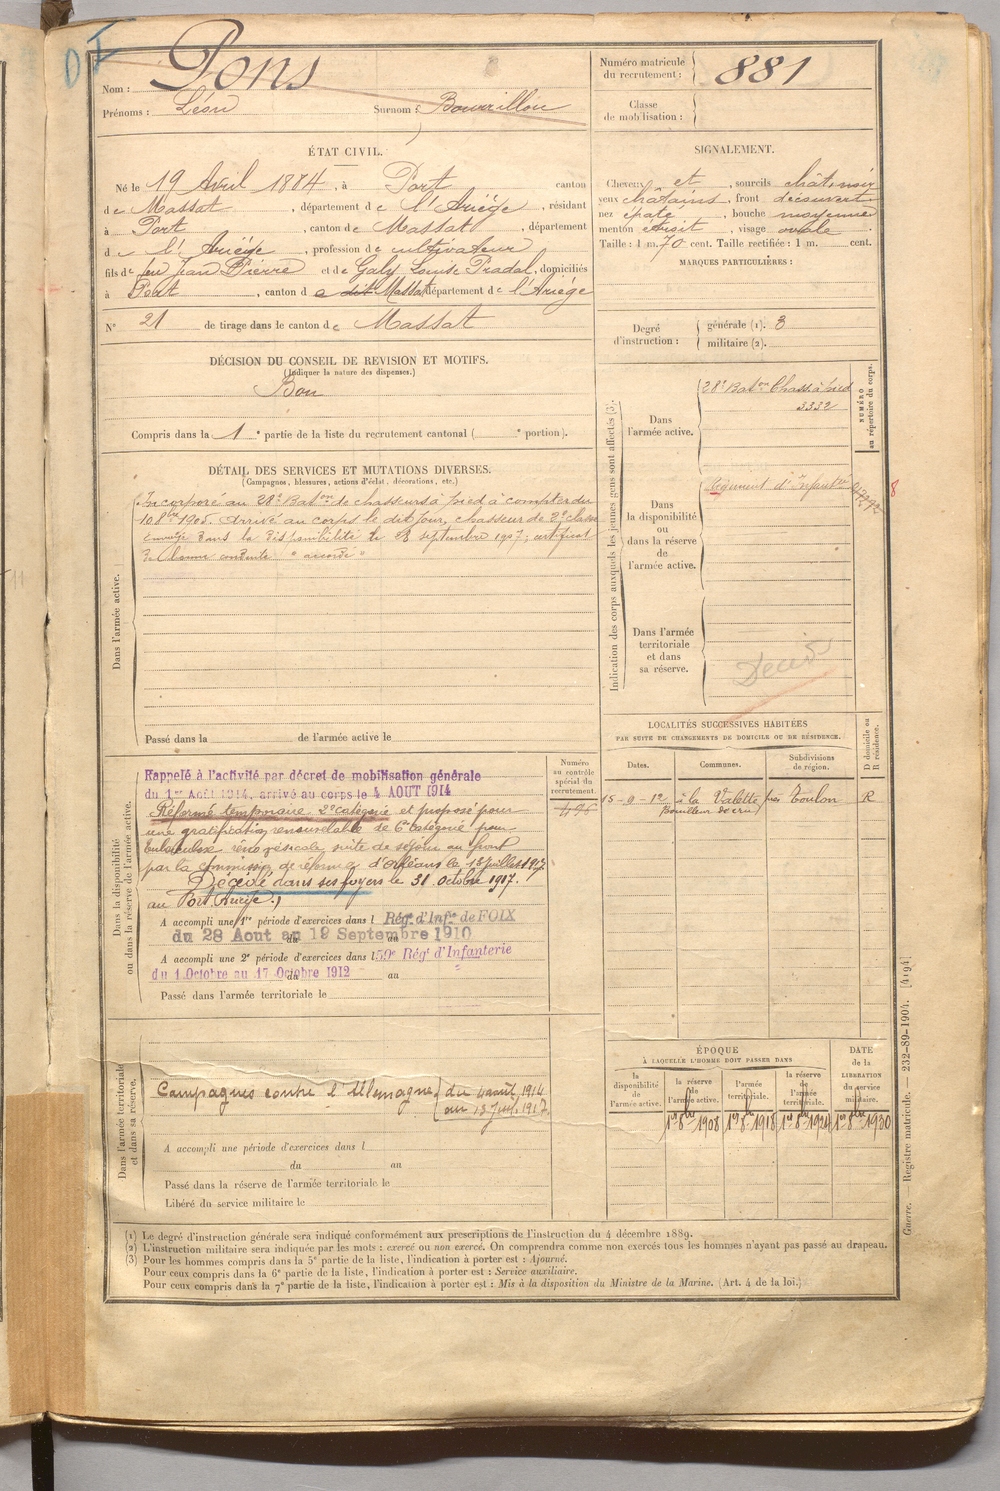 Nom : Pons
Prénoms : Léon Surnom : Bourrillou
Numéro matricule du recrutement : 881
Classe de mobilisation :
ÉTAT CIVIL.
Né le 19 Avril 1884, à Port canton
de Massat, département de l'Ariège, résidant
à Port, canton de Massat, département
de l'Ariège, profession de cultivateur
fils de feu Jean Pierre et de Galy Louise Pradal, domiciliés
à Port, canton de dit Massat département de l'Ariège
N° 21 de tirage dans le canton de Massat
SIGNALEMENT.
Cheveux et, sourcils châtains
yeux châtains, front découvert
nez épaté, bouche moyenne
menton étroit, visage ovale.
Taille : 1 m. 70 cent. Taille rectifiée : 1 m. cent.
MARQUES PARTICULIÈRES :
Degré d'instruction : générale (1). 3
militaire (2).
DÉCISION DU CONSEIL DE REVISION ET MOTIFS.
(Indiquer la nature des dispenses.)
Bon
Compris dans la 1e partie de la liste du recrutement cantonal ( e portion).
DÉTAIL DES SERVICES ET MUTATIONS DIVERSES.
(Campagnes, blessures, actions d'éclat, décorations, etc.)
Dans l'armée active.
Incorporé au 28e Baton de chasseurs à pied à compter du
10 8bre 1905. Arrivé au corps le dit jour, chasseur de 2e classe
Envoyé dans la disponibilité le 28 septembre 1907; certificat
de bonne conduite "accordé"
Passé dans la de l'armée active le
Indication des corps auxquels les jeunes gens sont affectés (3).
NUMÉRO au répertoire du corps.
Dans l'armée active.
28e Baton Chass. à pied
3332
Dans la disponibilité ou dans la réserve de l'armée active.
Régiment d'Infanterie
Dans l'armée territoriale et dans sa réserve.
Décédé
LOCALITÉS SUCCESSIVES HABITÉES
PAR SUITE DE CHANGEMENTS DE DOMICILE OU DE RÉSIDENCE.
D domicile ou R résidence.
Dates. Communes. Subdivisions de région.
15-9-12 à la Valette près Toulon R
Bouilleur de cru
Dans la disponibilité ou dans la réserve de l'armée active.
Numéro au contrôle spécial du recrutement.
Rappelé à l'activité par décret de mobilisation générale
du 1er Août 1914, arrivé au corps le 4 AOUT 1914
Réformé temporaire 2e catégorie et proposé pour
une gratification renouvelable de 6e catégorie pour
Tuberculose rénovésicale suite de séjour au front
par la Commission de réforme d'Orléans le 13 Juillet 1917.
Décédé dans ses foyers le 31 octobre 1917.
au Port Ariège.)
A accompli une 1re période d'exercices dans l Rég. d'Inf.ie de FOIX
du 28 Aout au 19 Septembre 1910
A accompli une 2e période d'exercices dans l 59e Régt d'Infanterie
du 1 Octobre au 17 Octobre 1912 au
Passé dans l'armée territoriale le
Dans l'armée territoriale et dans sa réserve.
Campagnes contre l'Allemagne du 4 août 1914
au 13 Juil. 1917.
A accompli une période d'exercices dans l
du au
Passé dans la réserve de l'armée territoriale le
Libéré du service militaire le
ÉPOQUE
À LAQUELLE L'HOMME DOIT PASSER DANS
DATE de la LIBÉRATION du service militaire.
la disponibilité de l'armée active.
la réserve de l'armée active.
l'armée territoriale.
la réserve de l'armée territoriale.
1er 8bre 1908 1er 8bre 1918 1er 8bre 1924 1er 8bre 1930
(1) Le degré d'instruction générale sera indiqué conformément aux prescriptions de l'instruction du 4 décembre 1889.
(2) L'instruction militaire sera indiquée par les mots : exercé ou non exercé. On comprendra comme non exercés tous les hommes n'ayant pas passé au drapeau.
(3) Pour les hommes compris dans la 5e partie de la liste, l'indication à porter est : Ajourné.
Pour ceux compris dans la 6e partie de la liste, l'indication à porter est : Service auxiliaire.
Pour ceux compris dans la 7e partie de la liste, l'indication à porter est : Mis à la disposition du Ministre de la Marine. (Art. 4 de la loi.)
Guerre. — Registre matricule. — 232-89-1904. [4194]